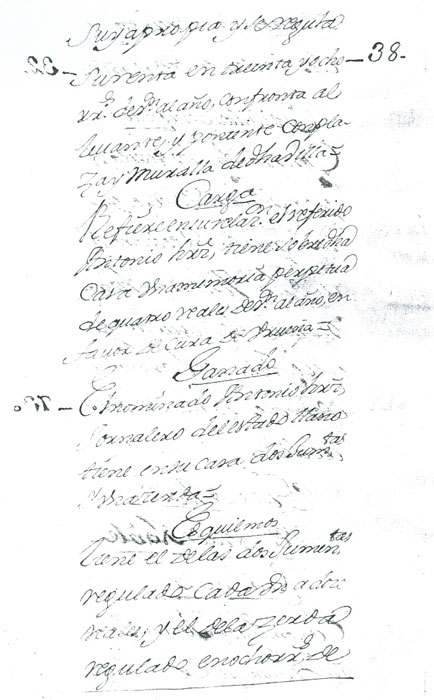 Suya propia y se regula
Su renta en treinta y ocho — 38.
rr.s de v.n al año, confronta al
levante, y poniente con pla-
za y Muralla de dha Villa=
Carga
Refiere en su relaz.n el referido
Antonio hrz, tiene sobre dha
Casa Una memoria perpetua
de quatro reales de v.n al año, en
favor de Cura de Urueña=
Ganado
El nominado Antonio hrz,
Jornalero del estado llano
tiene en su casa dos Jumen.tas
y Una zerda=
Esquiemos
tiene el de las dos Jumen.tas
regulado Cada Una a dos
reales, y el de la zerda
regulado en ocho rr.s de